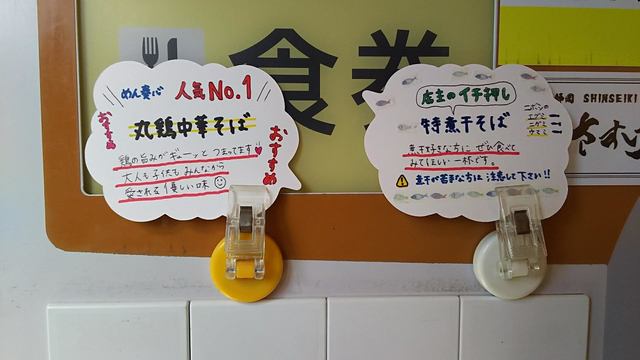 食券
めん奏心 人気No.1
おすすめ
丸鶏中華そば
おすすめ
鶏の旨みがギューッと つまってます
大人も子供も みんなから
愛される優しい味
店主のイチ押し
特煮干そば
ニボシの
エグミ
ニガミ
ウマミ
煮干好きな方に ぜひ食べて
みてほしい一杯です。
煮干が苦手な方は 注意して下さい!!
SHINSEIKI